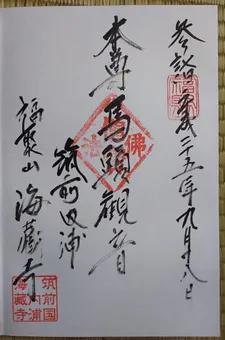 参詣 平成二十五年九月十八日
本尊 馬頭観音
佛
筑前内浦
福聚山 海蔵寺
筑前国
内浦
海蔵寺